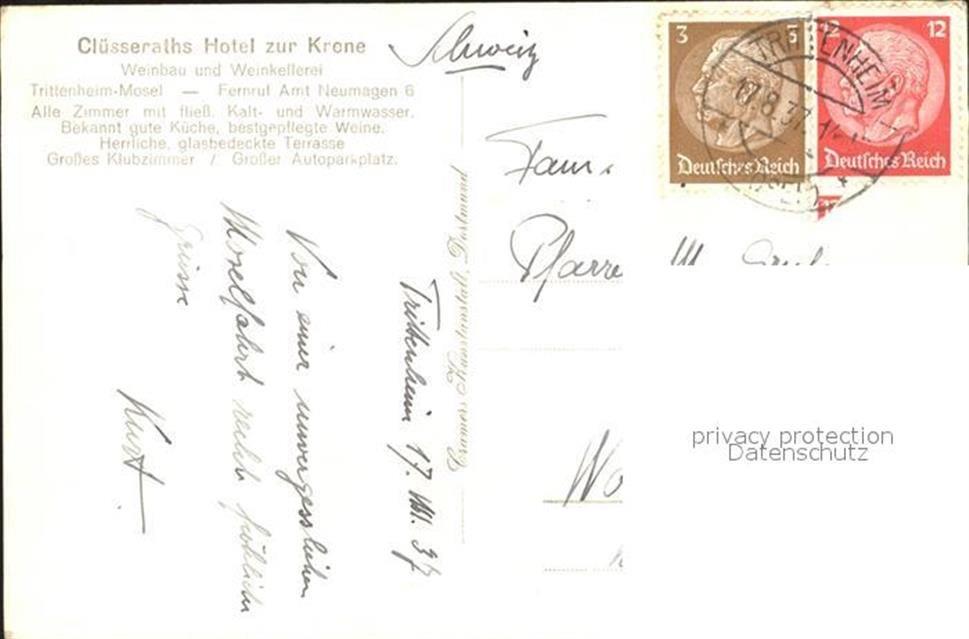 Clüsseraths Hotel zur Krone
Weinbau und Weinkellerei
Trittenheim-Mosel — Fernruf Amt Neumagen 6
Alle Zimmer mit fließ. Kalt- und Warmwasser.
Bekannt gute Küche, bestgepflegte Weine.
Herrliche, glasbedeckte Terrasse
Großes Klubzimmer / Großer Autoparkplatz.
Schweiz
3
12
Deutsches Reich
Deutsches Reich
TRITTENHEIM
17.8.37
Trittenheim 17. VIII. 37
Von einer unvergesslichen
Moselfahrt recht fröhliche
Grüsse
Kurt
Fam.
Pfarre
privacy protection
Datenschutz